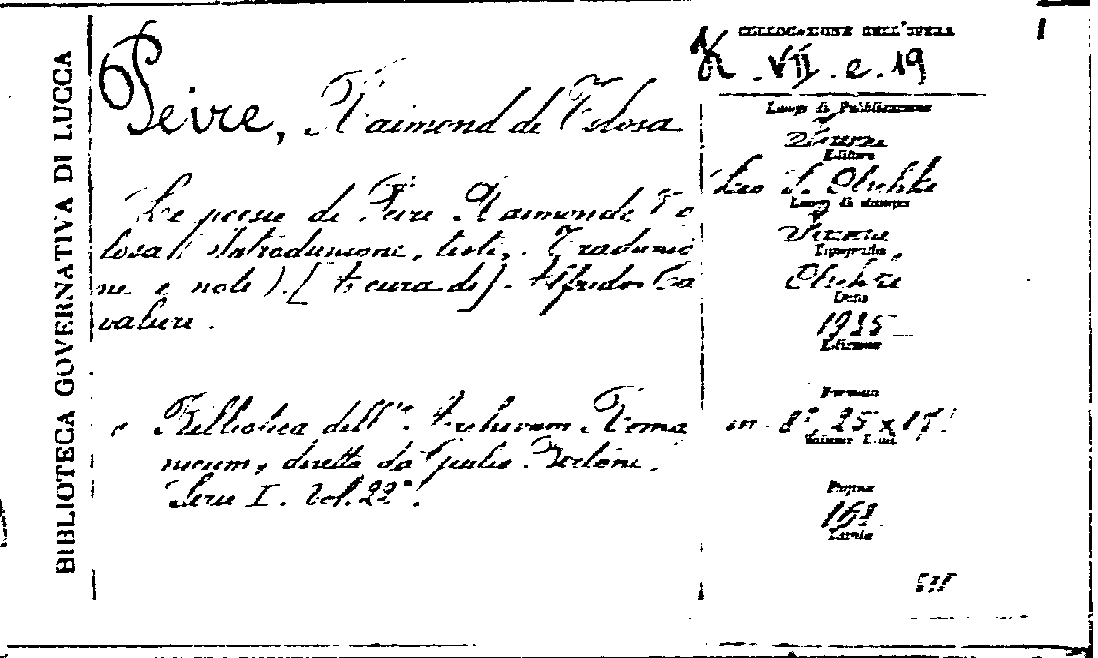 BIBLIOTECA GOVERNATIVA DI LUCCA
COLLOCAZIONE DELL'OPERA
K. VII. e. 19
Peire, Raimond de Tolosa
Le poesie di Peire Raimond de To
losa (Introduzione, testi, Traduzio
ne e note). [A cura di]. Alfredo Ca
valieri.
"Biblioteca dell'" Archivum Roma
nicum, diretta da Giulio Bertoni.
Serie I. Vol. 22°.
Luogo di Pubblicazione
Firenze
Editore
Leo S. Olschki
Luogo di stampa
Firenze
Tipografia
Olschki
Data
1935
Edizione
Formato
in 8°, 25 x 17.
Volume
Pagine
Tavole